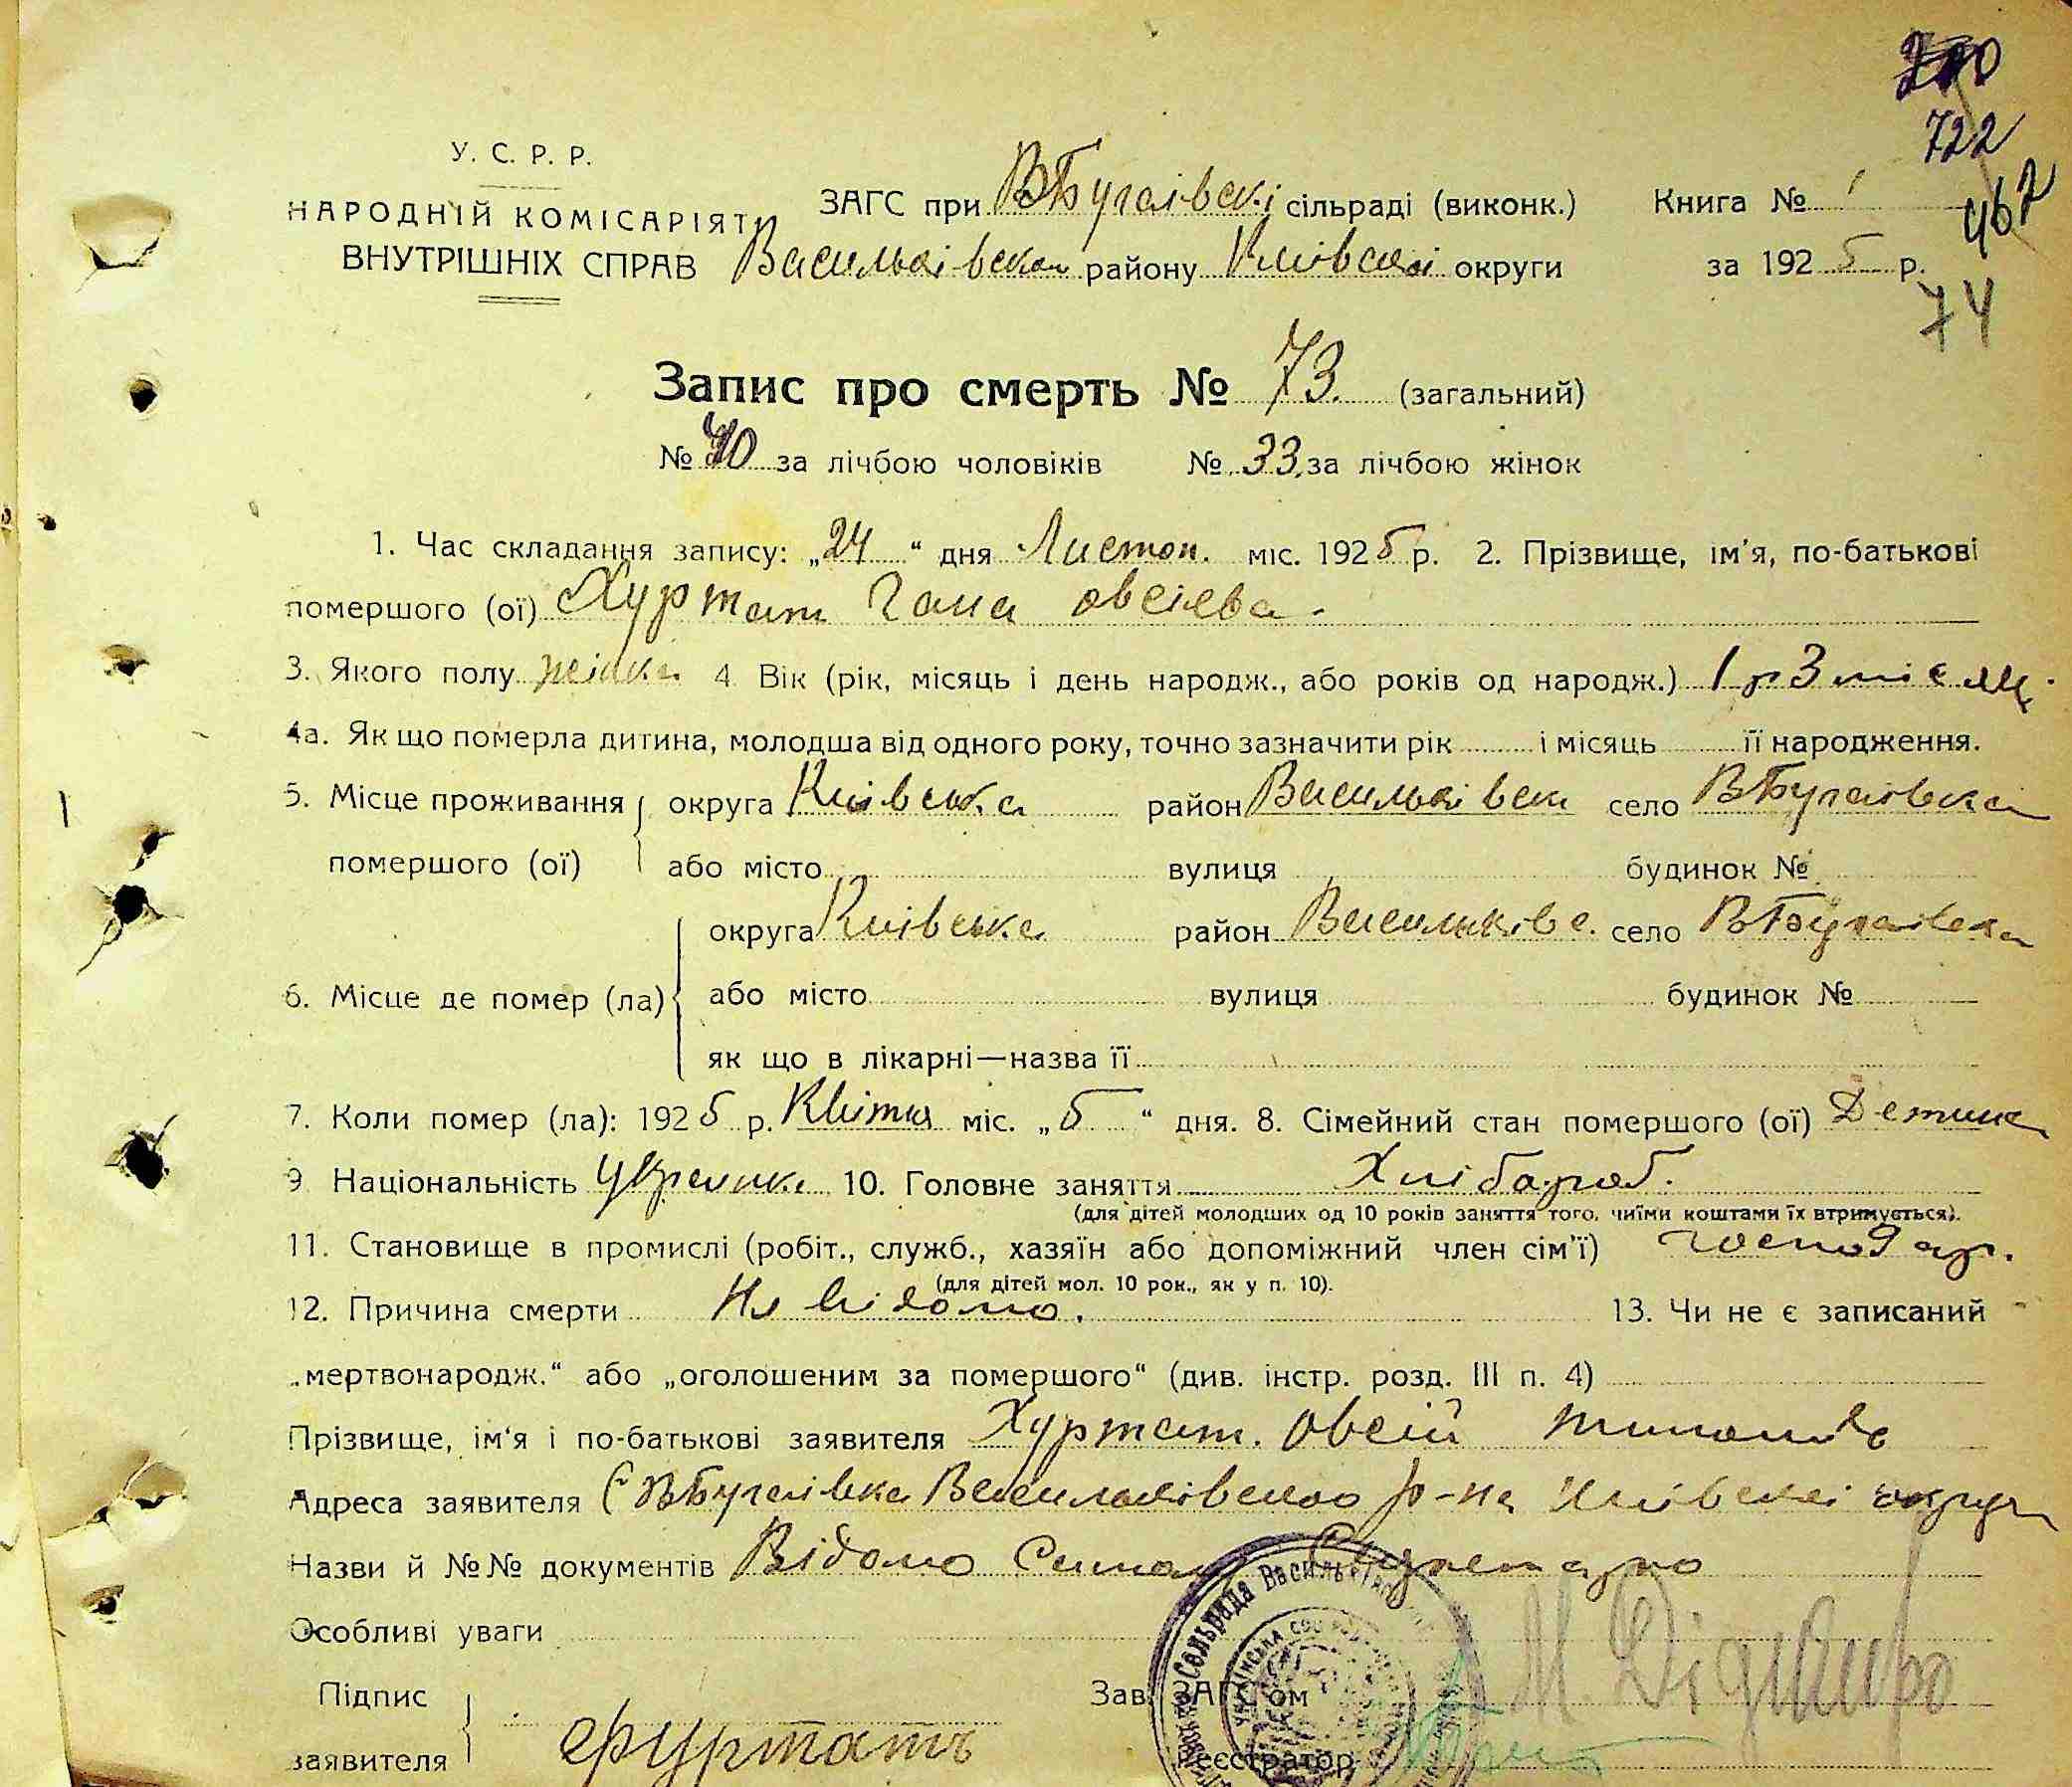 722
467
У. С. Р. Р.
НАРОДНІЙ КОМІСАРІЯТ
ВНУТРІШНІХ СПРАВ
ЗАГС при ВБугаївскі сільраді (виконк.)
Васильківска району Київскаі округи
Книга № 1
за 1925 р.
74
Запис про смерть № 73. (загальний)
№ 40 за лічбою чоловіків № 33. за лічбою жінок
1. Час складання запису: „24“ дня Листоп. міс. 1925 р. 2. Прізвище, ім'я, по-батькові
помершого (ої) Хуртат Гана Овсієва.
3. Якого полу жінка 4 Вік (рік, місяць і день народж., або років од народж.) 1 р 3 місяц.
4а. Як що померла дитина, молодша від одного року, точно зазначити рік і місяць її народження.
5. Місце проживання помершого (ої) округа Київська район Васильківск село ВБугаївка
або місто вулиця будинок №
6. Місце де помер (ла) округа Київська район Васильківс. село ВБугаївка
або місто вулиця будинок №
як що в лікарні—назва її
7. Коли помер (ла): 1925 р. Квітня міс. „5“ дня. 8. Сімейний стан помершого (ої) Детина
9 Національність Україінка 10. Головне заняття Хлібароб.
(для дітей молодших од 10 років заняття того, чиїми коштами їх втримується).
11. Становище в промислі (робіт., служб., хазяїн або допоміжний член сім'ї) господар.
(для дітей мол. 10 рок., як у п. 10).
12. Причина смерти Не відомо. 13. Чи не є записаний
„мертвонародж.“ або „оголошеним за помершого“ (див. інстр. розд. III п. 4)
Прізвище, ім'я і по-батькові заявителя Хуртат. Овсій
Адреса заявителя С ВБугаївка Васильківского р-на Київскаі округи
Назви й №№ документів Відомо Секретарю
Особливі уваги
Підпис заявителя Фуртать
Зав. ЗАГС'ом
Реєстратор
Сельрада Васильківського